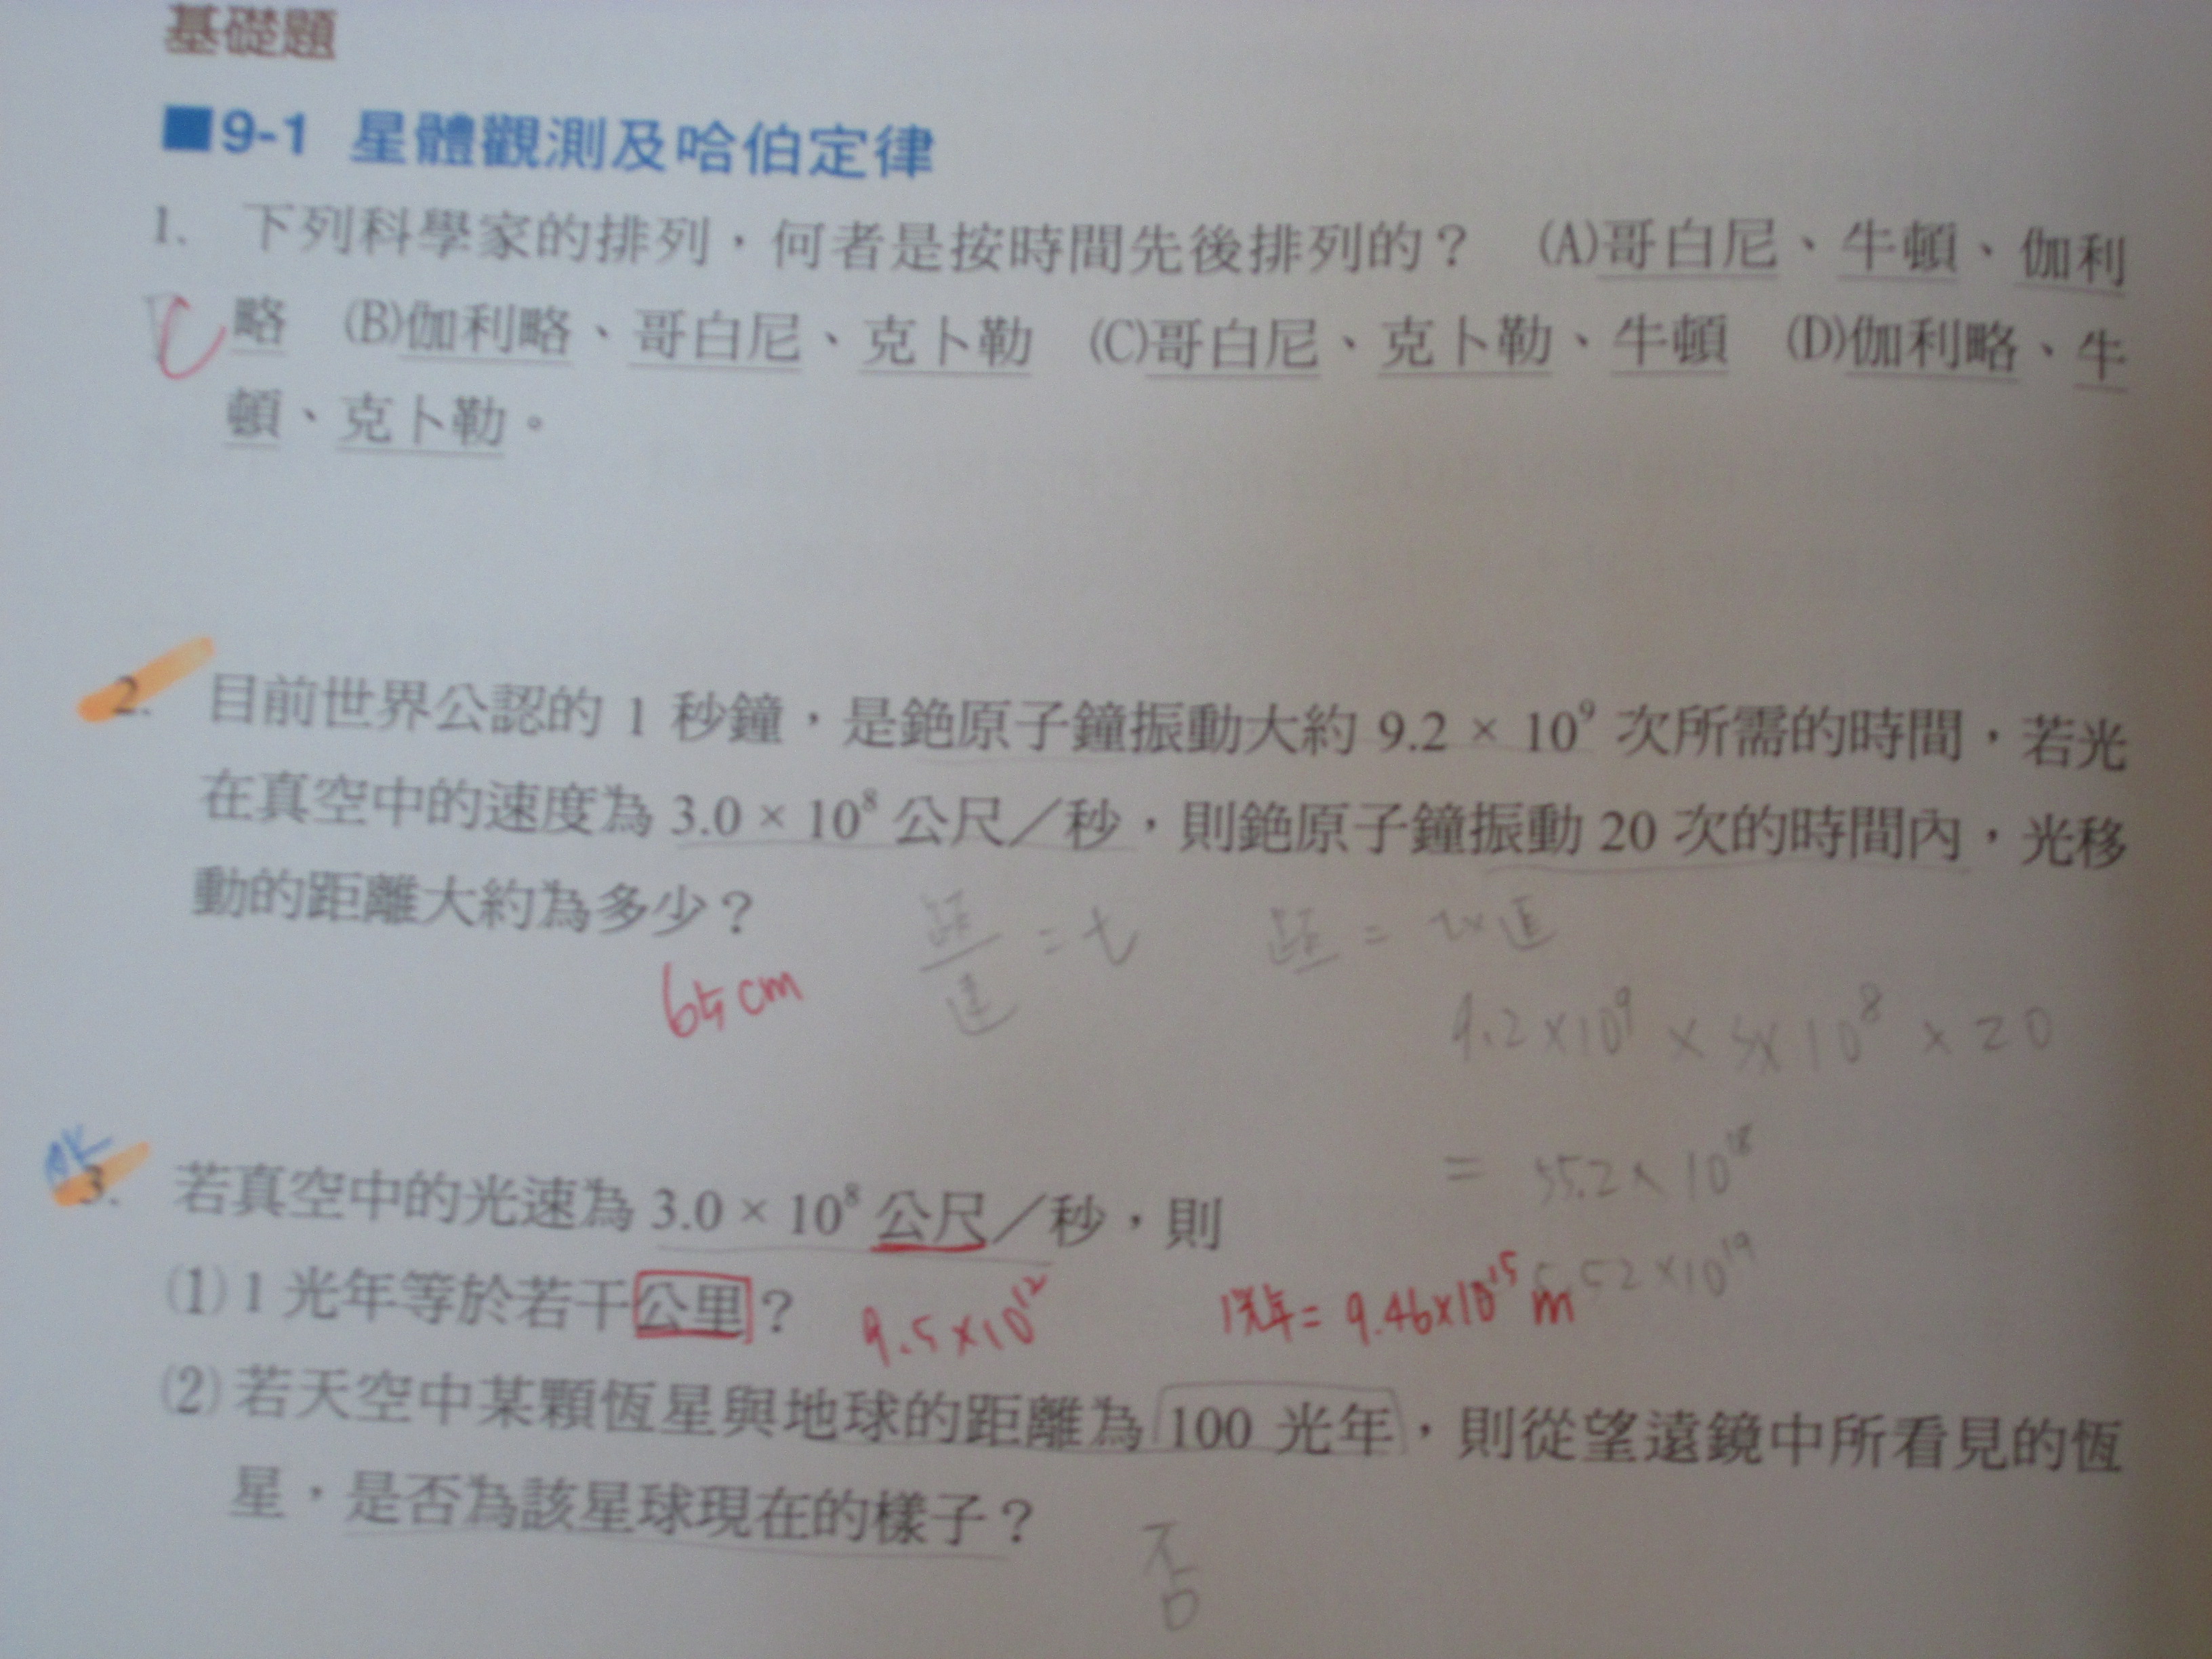 基礎題
■9-1 星體觀測及哈伯定律
1. 下列科學家的排列，何者是按時間先後排列的？ (A)哥白尼、牛頓、伽利
C 略 (B)伽利略、哥白尼、克卜勒 (C)哥白尼、克卜勒、牛頓 (D)伽利略、牛
頓、克卜勒。
2. 目前世界公認的 1 秒鐘，是銫原子鐘振動大約 9.2 × 10⁹ 次所需的時間，若光
在真空中的速度為 3.0 × 10⁸ 公尺／秒，則銫原子鐘振動 20 次的時間內，光移
動的距離大約為多少？
距/速 = t 距 = t×速
65 cm
9.2×10⁹ × 3×10⁸ × 20
= 55.2×10¹⁸
5.52×10¹⁹
OK
3. 若真空中的光速為 3.0 × 10⁸ 公尺／秒，則
(1) 1 光年等於若干公里？ 9.5×10¹² 1光年= 9.46×10¹⁵ m
(2) 若天空中某顆恆星與地球的距離為 100 光年，則從望遠鏡中所看見的恆
星，是否為該星球現在的樣子？
否